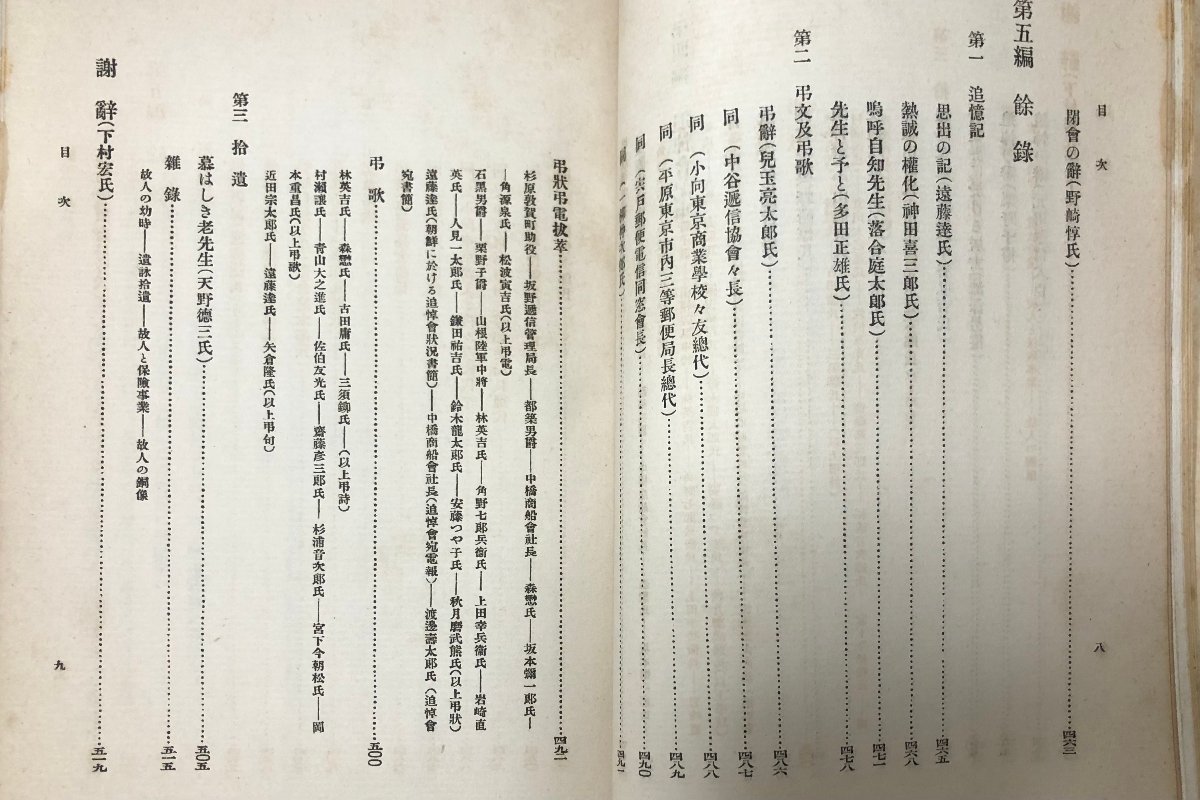 目次
八
閉會の辭(野崎惇氏)……四六三
第五編 餘錄
第一 追憶記
思出の記(遠藤達氏)……四六五
熱誠の權化(神田喜三郎氏)……四六八
嗚呼自知先生(落合庭太郎氏)……四七一
先生と予と(多田正雄氏)……四七八
第二 弔文及弔歌
弔辭(兒玉亮太郎氏)……四八六
同 (中谷遞信協會々長)……四八七
同 (小向東京商業學校々友總代)……四八八
同 (平原東京市內三等郵便局長總代)……四八九
同 郵便電信同窓會長)……四九〇
四九一
弔狀弔電拔萃……四九二
杉原敦賀町助役——坂野遞信管理局長——都築男爵——中橋商船會社長——森懋氏——坂本彌一郎氏—
—角源泉氏——松波寅吉氏(以上弔電)
石黑男爵——栗野子爵——山根陸軍中將——林英吉氏——角野七郎兵衞氏——上田幸兵衞氏——岩崎直
英氏——人見一太郞氏——鎌田祐吉氏——鈴木龍太郞氏——安藤つや子氏——秋月磨武熊氏(以上弔狀)
遠藤達氏(朝鮮に於ける追悼會狀況書簡)——中橋商船會社長(追悼會宛電報)——渡邊壽太郞氏(追悼會
宛書簡)
弔歌……五〇〇
林英吉氏——森懋氏——古田庸氏——三須鉚氏——(以上弔詩)
村瀨讓氏——靑山大之進氏——佐伯友光氏——齋藤彥三郞氏——杉浦音次郞氏——宮下今朝松氏——岡
本重昌氏(以上弔歌)
近田宗太郞氏——遠藤達氏——矢倉隆氏(以上弔句)
第三 拾遺
慕はしき老先生(天野德三氏)……五〇五
雜錄……五一五
故人の幼時——遺詠拾遺——故人と保險事業——故人の銅像
謝辭(下村宏氏)……五一九
目次
九